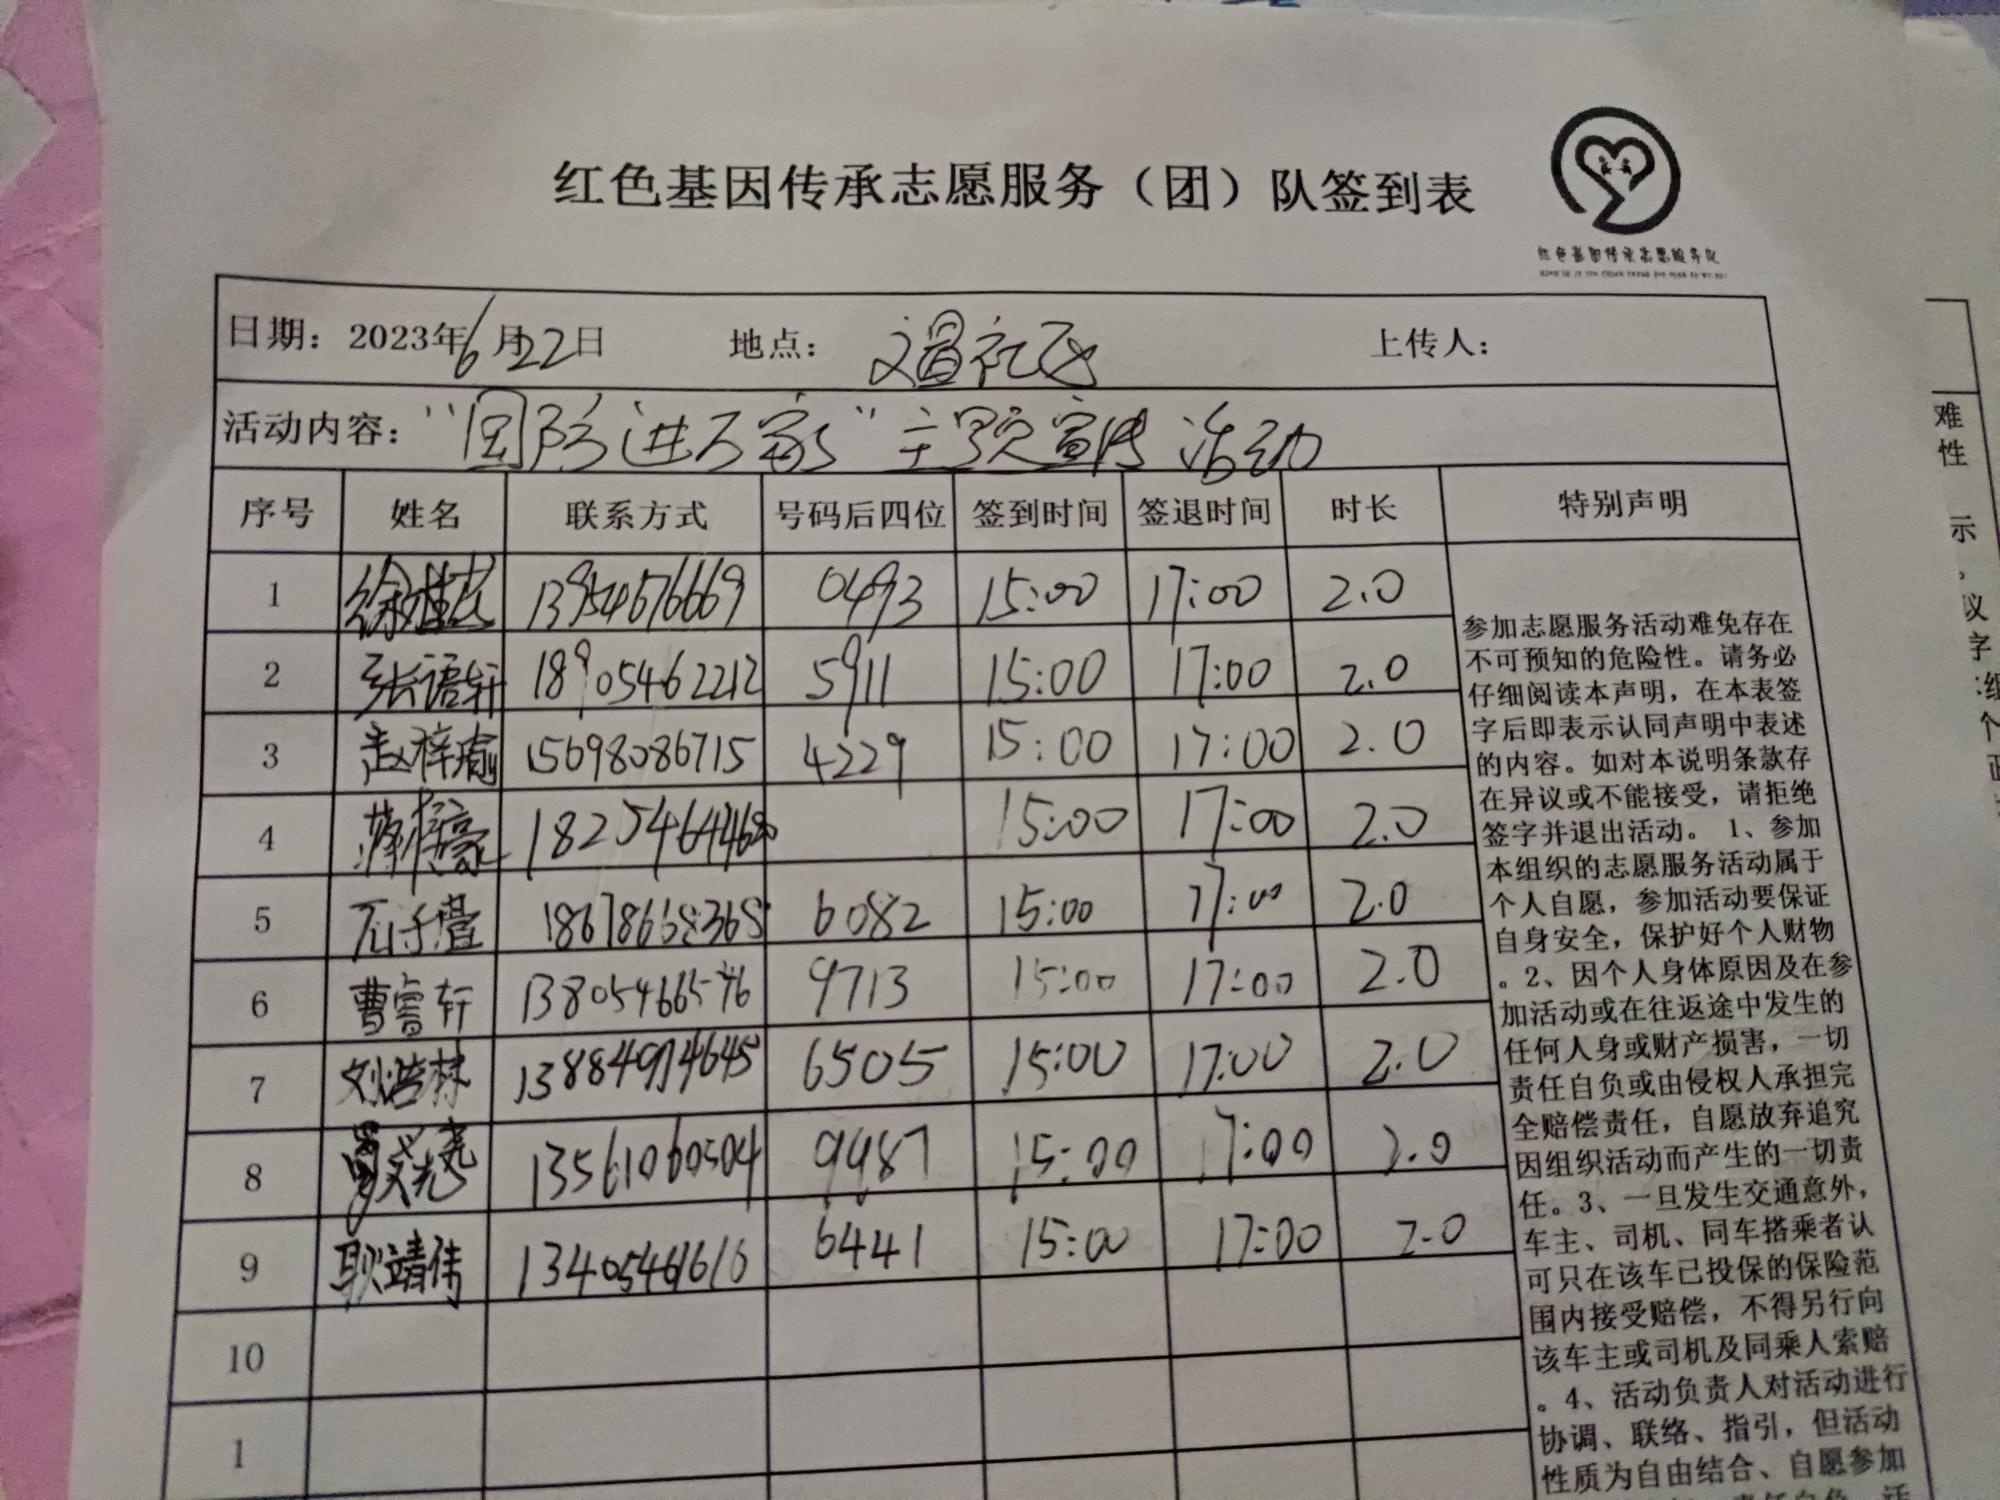 红色基因传承志愿服务（团）队签到表
红色基因传承志愿服务队
日期：2023年6月22日 地点： 上传人：
活动内容：“国防进万家”主题宣传活动
序号 姓名 联系方式 号码后四位 签到时间 签退时间 时长 特别声明
1 13954676669 0493 15:00 17:00 2.0
2 张语轩 18905462212 5911 15:00 17:00 2.0
3 赵梓瑜 15698086715 4229 15:00 17:00 2.0
4 15:00 17:00 2.0
5 18678668368 6082 15:00 17:00 2.0
6 曹睿轩 9713 15:00 17:00 2.0
7 刘浩林 13884974645 6505 15:00 17:00 2.0
8 13561060504 9987 15:00 17:00 2.0
9 耿靖伟 13405461616 6441 15:00 17:00 2.0
10
1
参加志愿服务活动难免存在
不可预知的危险性。请务必
仔细阅读本声明，在本表签
字后即表示认同声明中表述
的内容。如对本说明条款存
在异议或不能接受，请拒绝
签字并退出活动。1、参加
本组织的志愿服务活动属于
个人自愿，参加活动要保证
自身安全，保护好个人财物
。2、因个人身体原因及在参
加活动或在往返途中发生的
任何人身或财产损害，一切
责任自负或由侵权人承担完
全赔偿责任，自愿放弃追究
因组织活动而产生的一切责
任。3、一旦发生交通意外，
车主、司机、同车搭乘者认
可只在该车已投保的保险范
围内接受赔偿，不得另行向
该车主或司机及同乘人索赔
。4、活动负责人对活动进行
协调、联络、指引，但活动
性质为自由结合、自愿参加
难
性
示
议
字
细
个